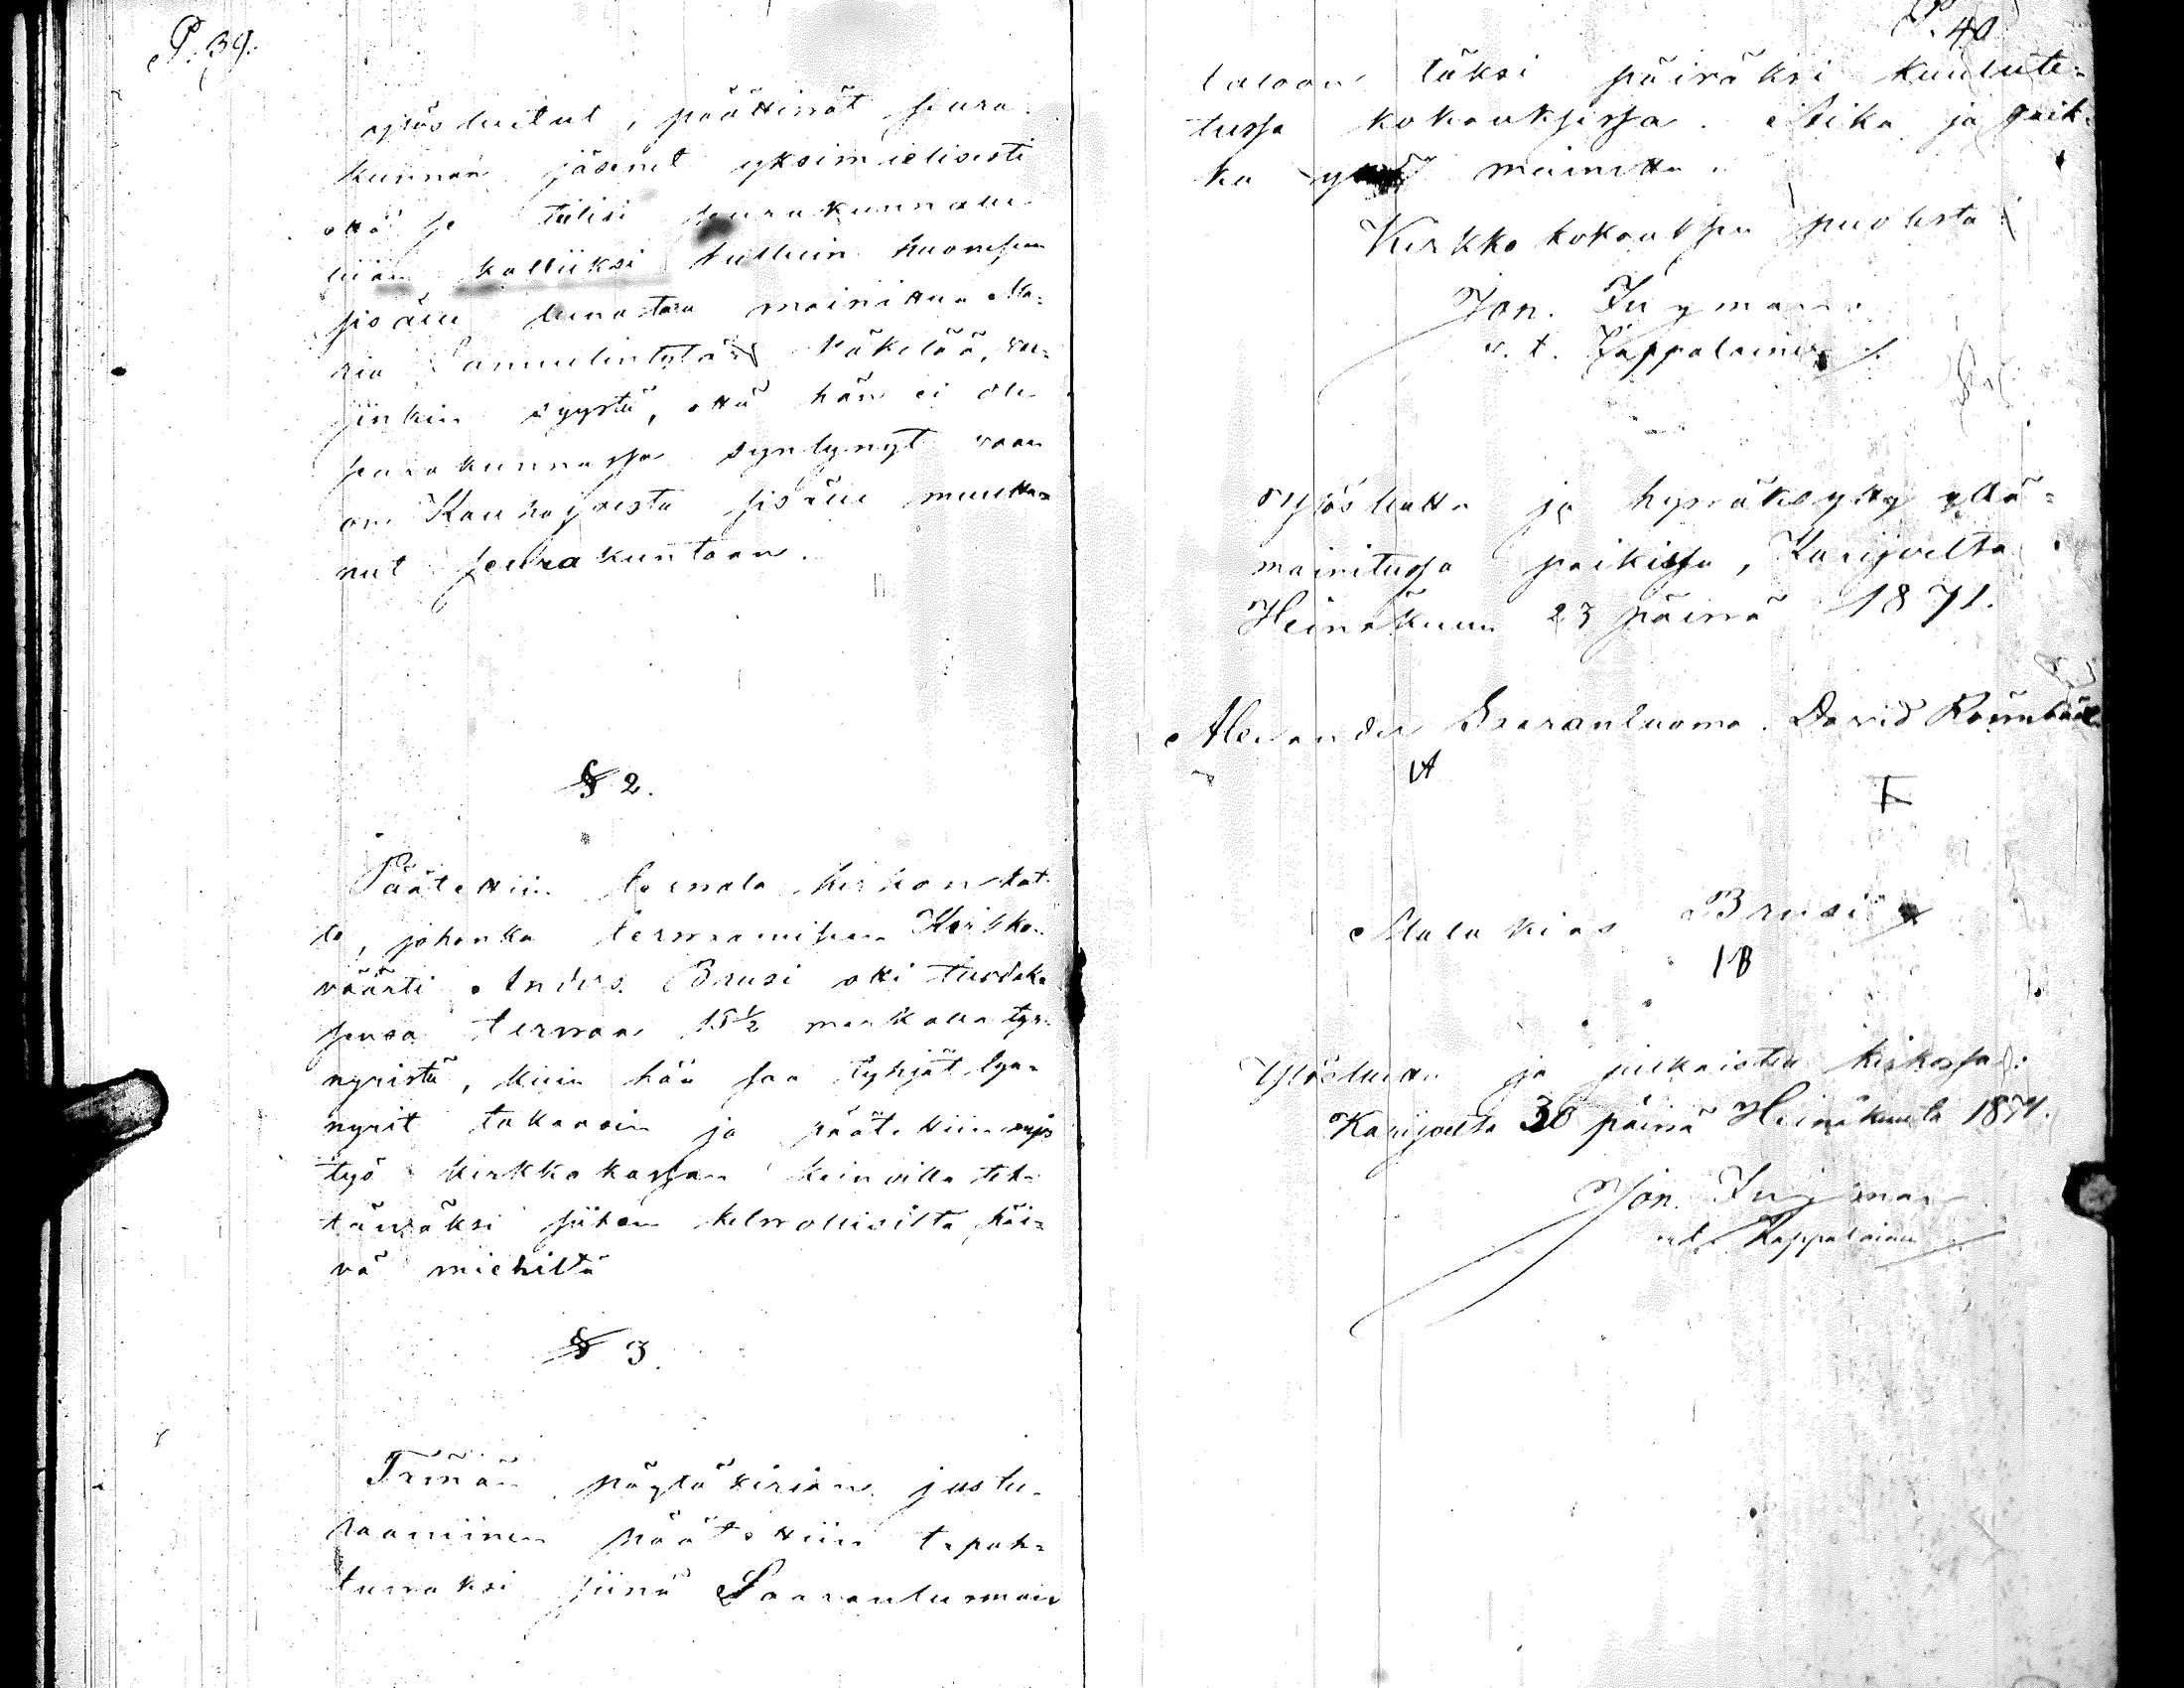 P. 39.
ylösluetut, päättivät seura
kunnan jäsenet yksimielisesti
että se tulisi seurakunnalle
liian kalliiksi tulleen huonesen
sisälle lunastaa mainittua Ma=
ria Samuelintytärtä Näkelää,
senkin syystä, että hän ei ole
seurakunnassa syntynyt vaan
on Kauhajoesta sisälle muutta=
nut seurakuntaan.
§ 2.
Päätettiin terwata kirkon kat=
to, johonka terwaamiseen Kirkko=
väärti Anders Brusi otti tuodak=
sensa terwaa 15½ markalla tyn=
nyristä, kuin hän saa tyhjät tyn=
nyrit takaisin ja päätettiin myös
työ kirkkokassan keinoilla teh=
täwäksi siihen kelwollisilta päi=
vä miehiltä
§ 3.
Tämän pöytäkirjan justee=
raaminen päätettiin tapah=
tuvaksi siinä Saaranluoman
P. 40
taloon täksi päiväksi kuulute=
tussa kokouksessa. Aika ja paik=
ka mainittu.
Kirkkokokouksen puolesta:
Jon. Ingman
v. t. Kappalainen
Ylösluettu ja hyväksytty yllä=
mainitussa paikassa, Karijoelta
Heinäkuun 23 päivä 1871.
Alexander Saaranluoma. David
Malakias Brusi
Ylösluettu ja julkaistu kirkossa:
Karijoelta 30 päivä Heinäkuuta 1871.
Jon. Ingman
v.t. Kappalainen